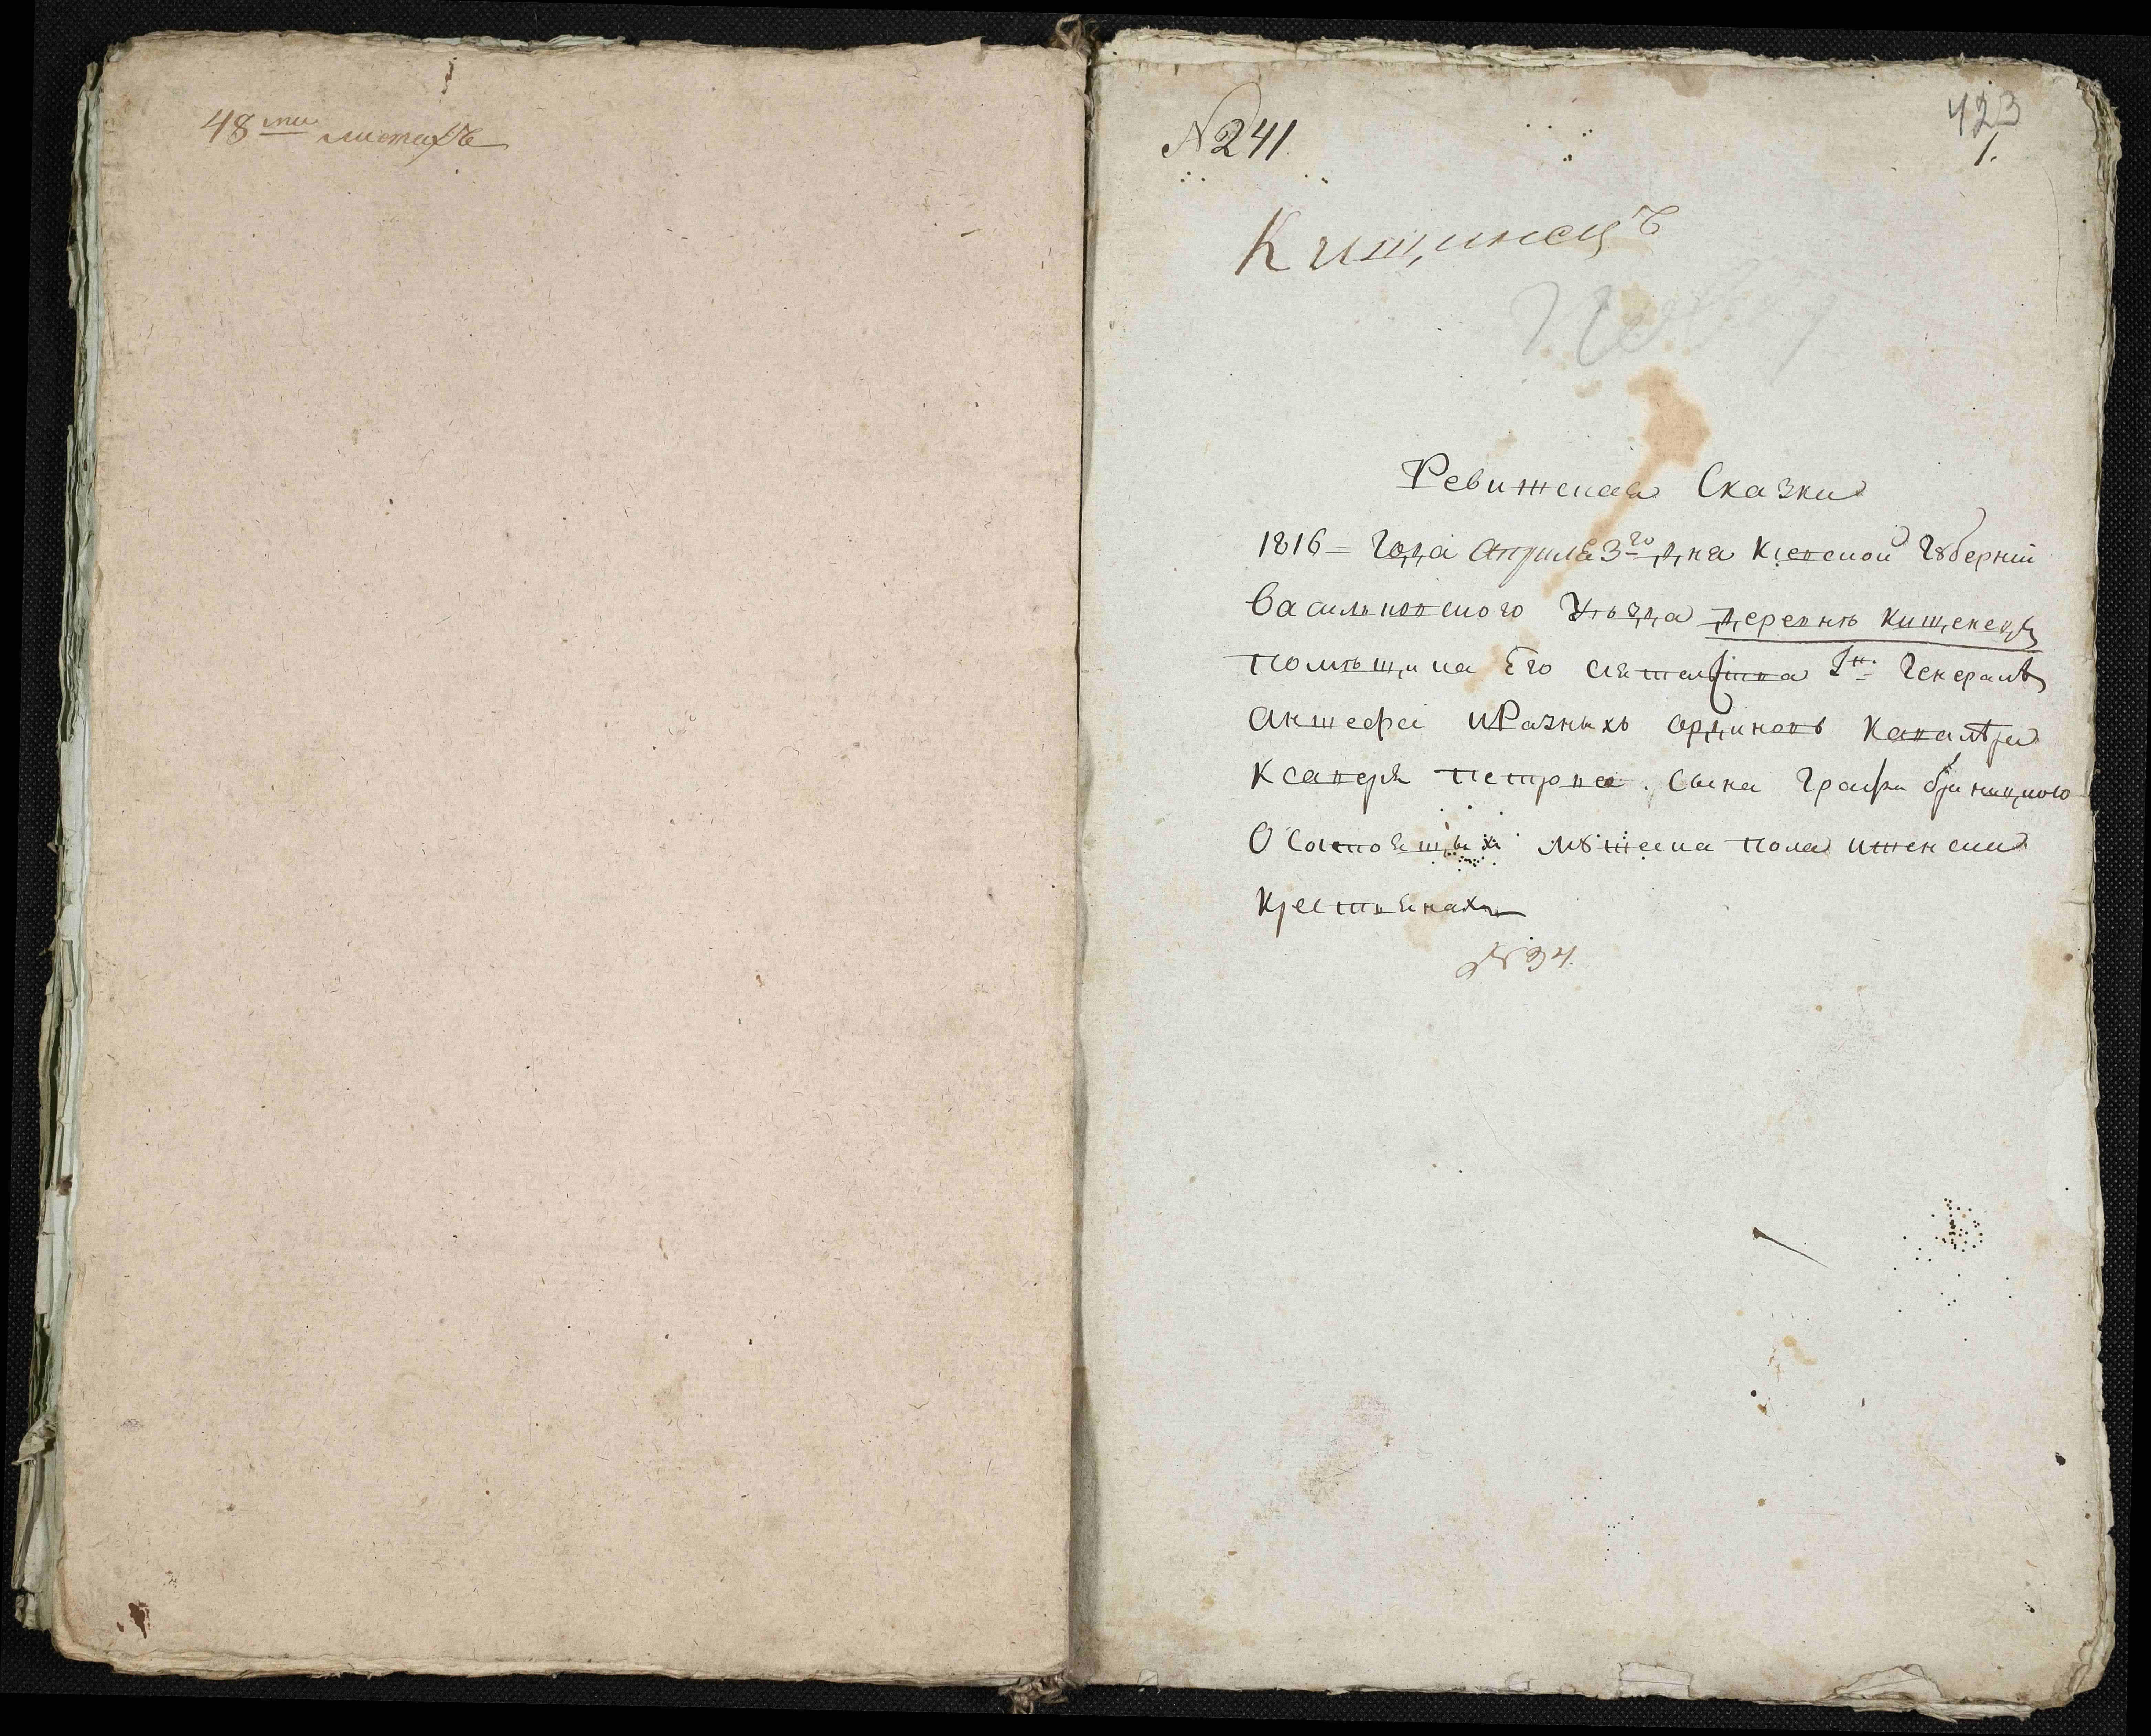 48ми листахъ
№241.
423
1.
Кищинецъ
Ревижская Сказка
1816= года апреля 3го дня Киевской Губернии
Васильковского Уезда деревнѣ Кищенецъ
помѣщика Его сиятельства Гн: Генералъ
Аншефа и Разныхъ ординовъ Кавалѣра
Ксаверя петрова сына Графа браницкого
О Состоящыхъ мужеска пола и женска
Крестьянахъ
№34.